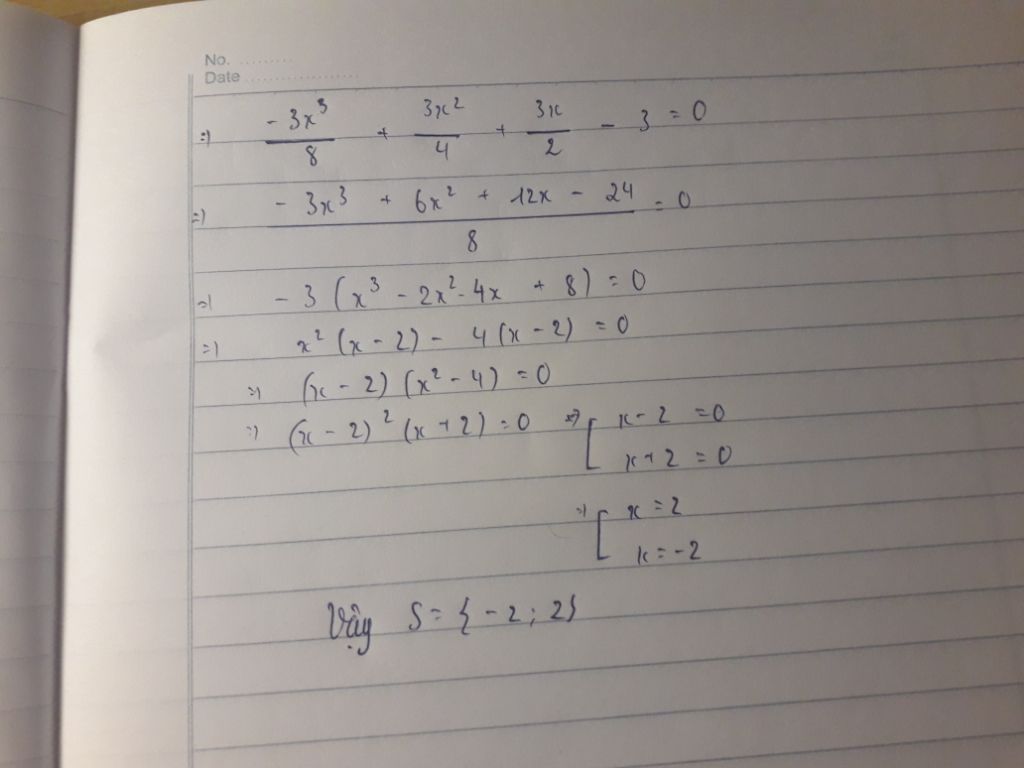 No. ..........
Date ....................
=) -3x³/8 + 3x²/4 + 3x/2 - 3 = 0
=) (-3x³ + 6x² + 12x - 24)/8 = 0
=) -3 (x³ - 2x² - 4x + 8) = 0
=) x² (x - 2) - 4 (x - 2) = 0
=) (x - 2) (x² - 4) = 0
=) (x - 2)² (x + 2) = 0 => [ x - 2 = 0
x + 2 = 0
=) [ x = 2
x = -2
Vậy S = { -2 ; 2}